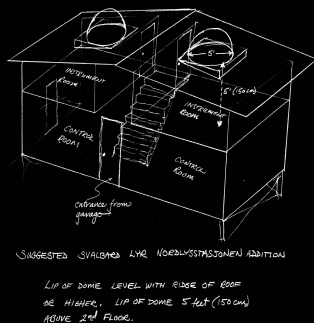 5'
INSTRUMENT
ROOM
INSTRUMENT
ROOM
5' (150cm)
CONTROL
ROOM
CONTROL
ROOM
entrance from
garage
SUGGESTED SVALBARD LYR NORDLYSSTASJONEN ADDITION
LIP OF DOME LEVEL WITH RIDGE OF ROOF
OR HIGHER. LIP OF DOME 5 feet (150cm)
ABOVE 2nd FLOOR.